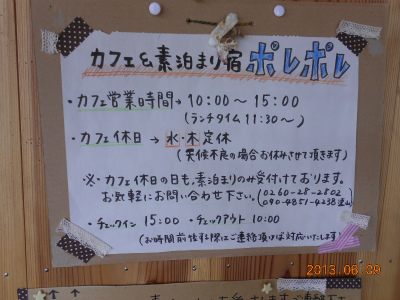 カフェ&素泊まり宿 ポレポレ
・カフェ営業時間→ 10:00〜15:00
(ランチタイム 11:30〜)
・カフェ休日 → 水・木定休
(天候不良の場合お休みさせて頂きます)
※・カフェ休日の日も、素泊まりのみ受付けております。
お気軽にお問い合わせ下さい。(0260-28-2802
090-4851-4238
・チェックイン 15:00 ・チェックアウト 10:00
(お時間前後する際はご連絡頂ければ対応いたします)
2013.06.09